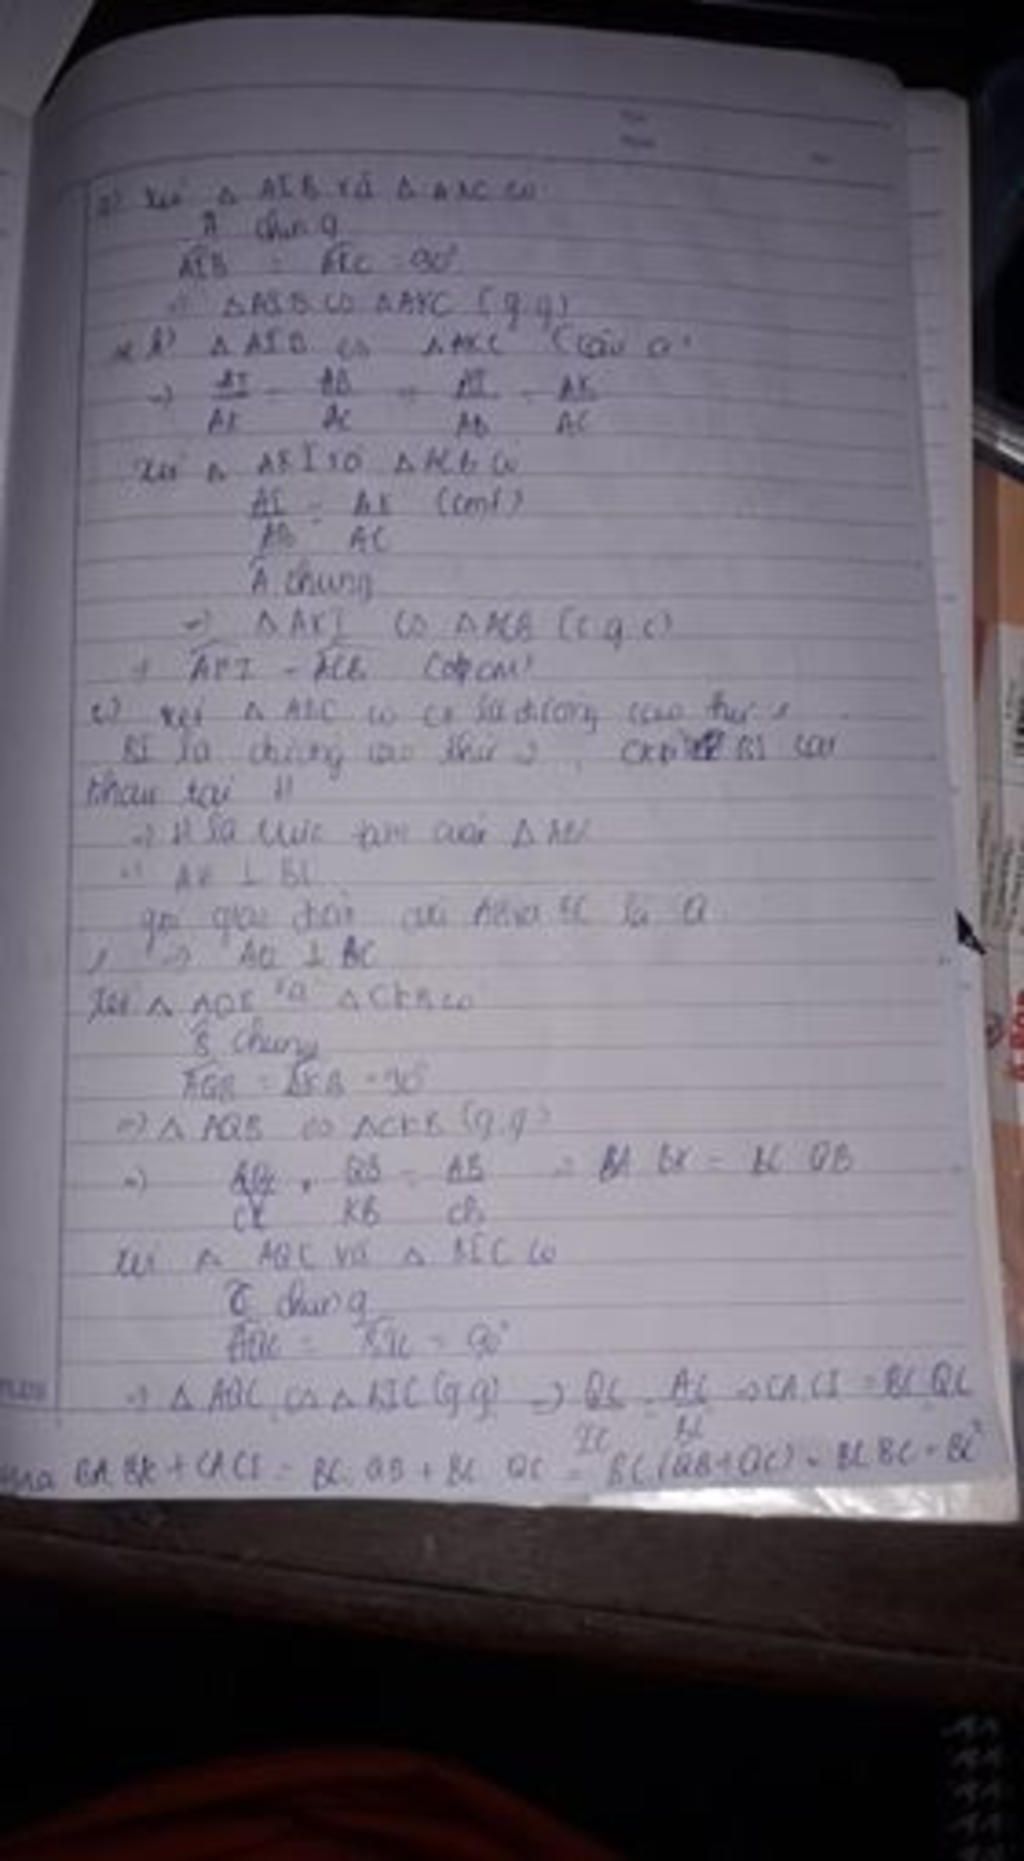 a) Xét △ AIB và △ AKC có
Â chung
AIB = AKC = 90°
=> △AIB ∽ △AKC (g.g)
b) △ AIB ∽ △AKC (câu a)
=> AI/AK = AB/AC => AI/AB = AK/AC
Xét △ AKI và △ ACB có
AI/AB = AK/AC (cmt)
Â chung
=> △ AKI ∽ △ACB (c.g.c)
=> AKI = ACB (đpcm)
c) Xét △ ABC có CK là đường cao thứ 1
BI là đường cao thứ 2, CK BI cắt
nhau tại H
=> H là trực tâm của △ ABC
=> ⊥ BC
gọi giao điểm của AH và BC là Q
=> AQ ⊥ BC
Xét △ AQB và △ CKB có
B̂ chung
AQB = CKB = 90°
=> △ AQB ∽ △CKB (g.g)
=> AQ/CK = QB/KB = AB/CB => BA BK = BC QB
Xét △ AQC và △ BIC có
Ĉ chung
AQC = BIC = 90°
=> △ AQC ∽ △ BIC (g.g) => QC/IC = AC/BC => CA CI = BC QC
BA BK + CA CI = BC QB + BC QC = BC (QB+QC) = BC BC = BC²